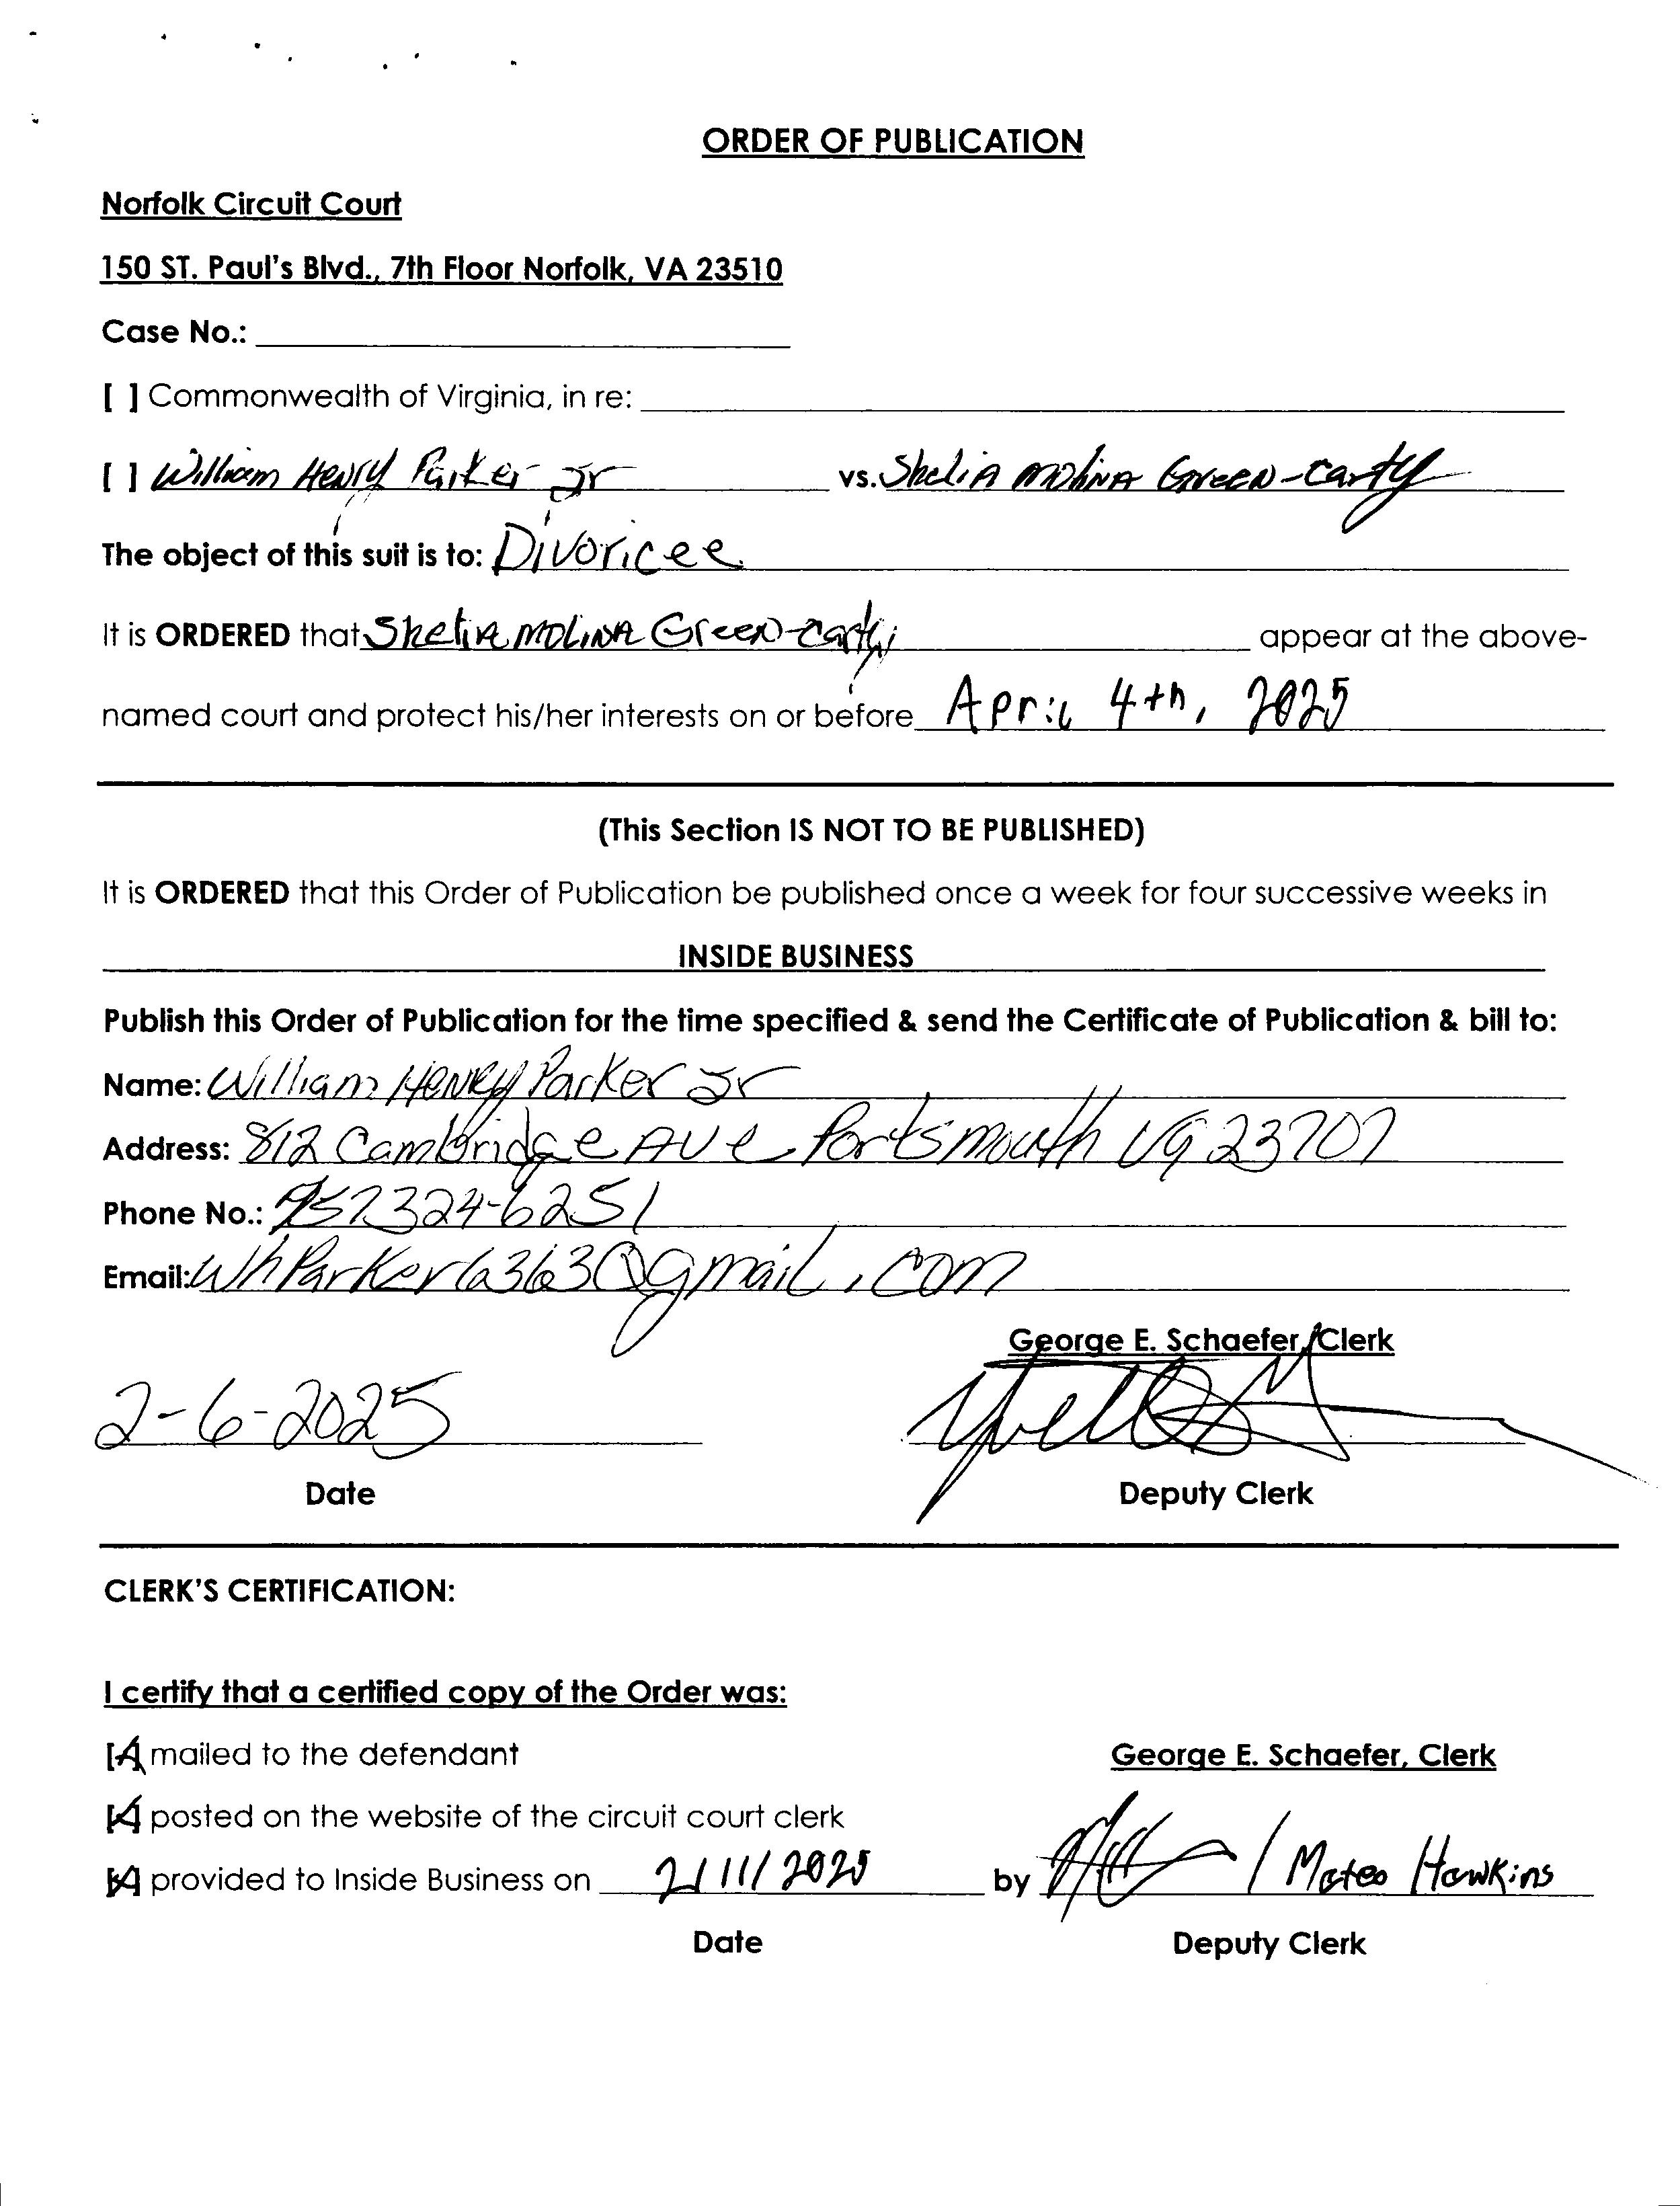 ORDER OF PUBLICATION
Norfolk Circuit Court
150 ST. Paul's Blvd., 7th Floor Norfolk, VA 23510
Case No.:
[ ] Commonwealth of Virginia, in re:
[ ] William Henry Parker Jr vs. Shelia Molina Green-Carty
The object of this suit is to: Divoricee
It is ORDERED that Shelia Molina Green-Carty appear at the above-
named court and protect his/her interests on or before April 4th, 2025
(This Section IS NOT TO BE PUBLISHED)
It is ORDERED that this Order of Publication be published once a week for four successive weeks in
INSIDE BUSINESS
Publish this Order of Publication for the time specified & send the Certificate of Publication & bill to:
Name: William Henry Parker Jr
Address: 812 Cambridge Ave Portsmouth Va 23707
Phone No.: 757324-6251
Email: WhParker6363@gmail.com
George E. Schaefer, Clerk
2-6-2025
Date Deputy Clerk
CLERK'S CERTIFICATION:
I certify that a certified copy of the Order was:
mailed to the defendant George E. Schaefer, Clerk
posted on the website of the circuit court clerk
provided to Inside Business on 2/11/2025 by / Mateo Hawkins
Date Deputy Clerk